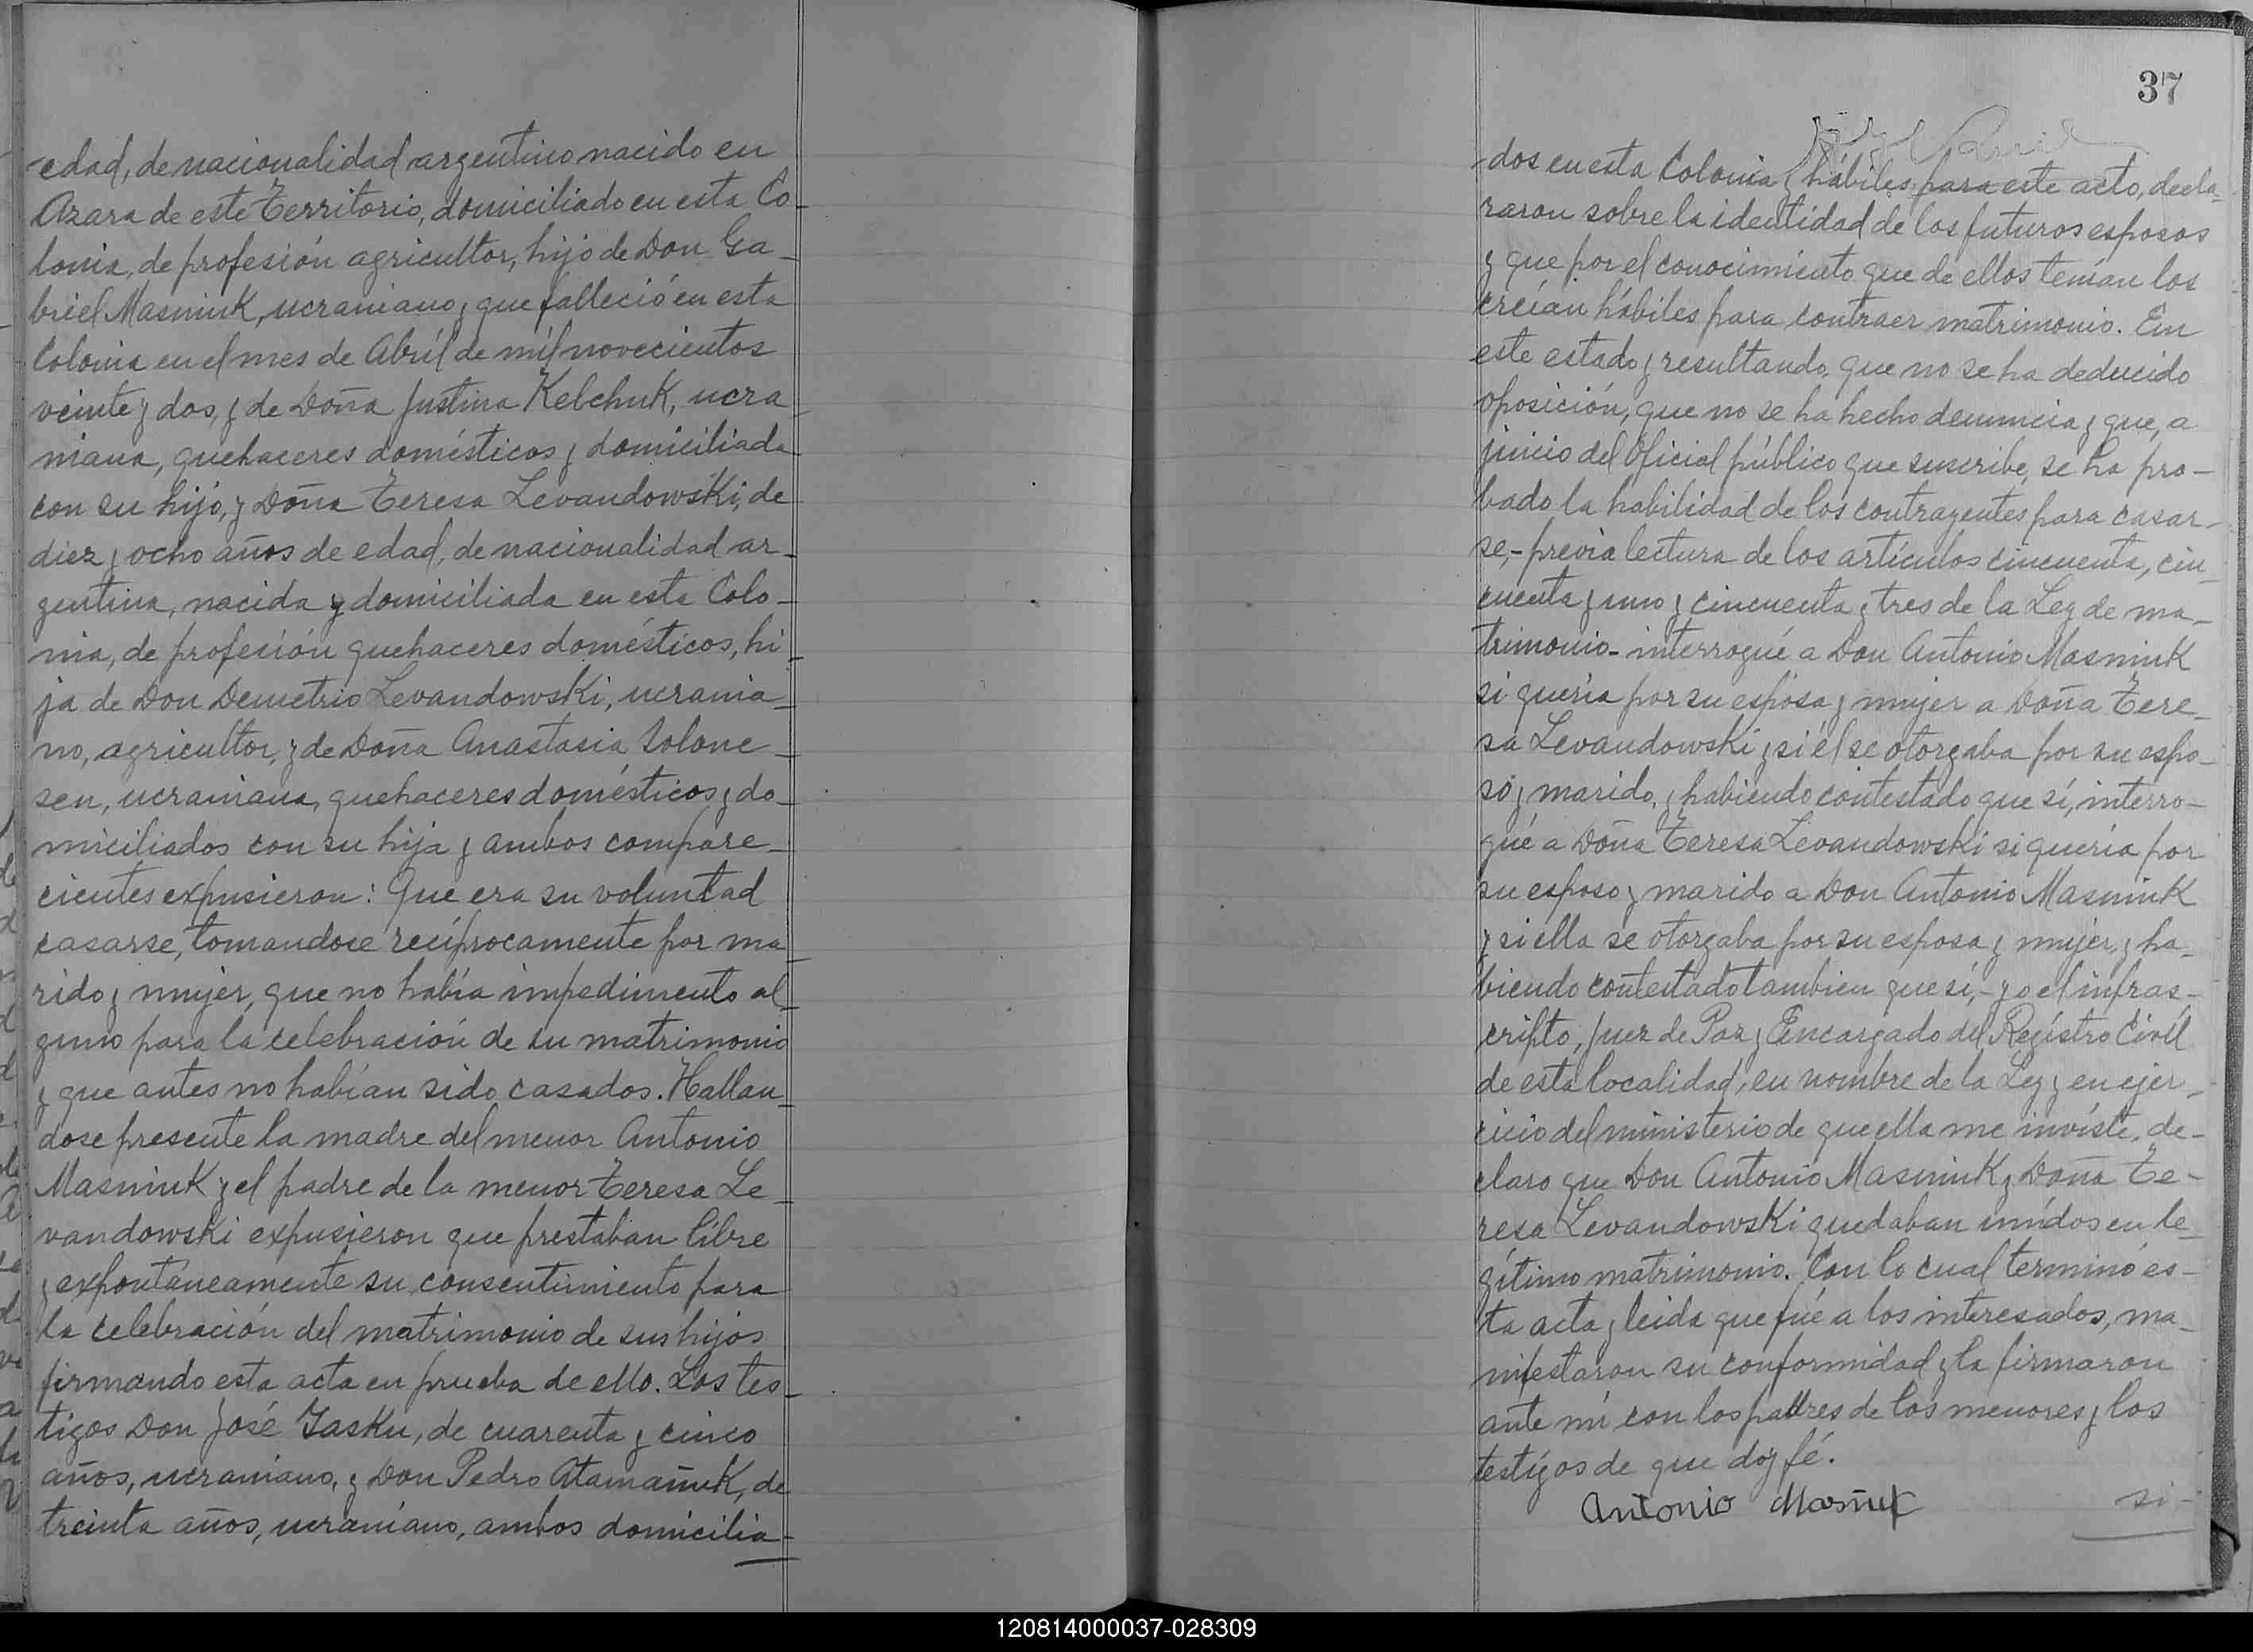 -edad, de nacionalidad argentino nacido en
Azara de este Territorio, domiciliado en esta Co-
lonia, de profesión agricultor, hijo de Don Ga-
briel Masniuk, ucraniano, que falleció en esta
Colonia en el mes de Abríl de mil novecientos
veinte y dos, y de Doña Justina Kelchuk, ucra
niana, quehaceres domésticos y domiciliada
con su hijo, y Doña Teresa Levandowski, de
diez y ocho años de edad, de nacionalidad ar-
gentina, nacida y domiciliada en esta Colo-
nia, de profesión quehaceres domésticos, hi-
ja de Don Demetrio Levandowski, ucrania-
no, agricultor, y de Doña Anastasia Solone-
sen, ucraniana, quehaceres domésticos y do-
miciliados con su hija y ambos compare-
cientes expusieron: Que era su voluntad
casarse, tomandose recíprocamente por ma-
rido y mujer, que no había impedimento al-
guno para la celebración de su matrimonio
y que antes no habían sido casados. Hallan-
dose presente la madre del menor Antonio
Masniuk y el padre de la menor Teresa Le-
vandowski expusieron que prestaban líbre
y expontáneamente su consentimiento para
la celebración del matrimonio de sus hijos
firmando esta acta en prueba de ello. Los tes-
tigos Don José Jasku, de cuarenta y cinco
años, ucraniano, y Don Pedro Atamañuk, de
treinta años, ucraniano, ambos domicilia-
37
-dos en esta Colonia y hábiles para este acto, decla-
raron sobre la identidad de los futuros esposos
y que por el conocimiento que de ellos tenían los
creían hábiles para contraer matrimonio. En
este estado y resultando que no se ha deducido
oposición, que no se ha hecho denuncia y que, a
juicio del Oficial público que suscribe, se ha pro-
bado la habilidad de los contrayentes para casar-
se,- previa lectura de los artículos cincuenta, cin-
cuenta y uno y cincuenta y tres de la Ley de ma-
trimonio- interrogué a Don Antonio Masniuk
si quería por su esposa y mujer a Doña Tere-
sa Levandowski y si él se otorgaba por su espo-
so y marido, y habiendo contestado que sí, interro-
gué a Doña Teresa Levandowski si quería por
su esposo y marido a Don Antonio Masniuk
y si ella se otorgaba por su esposa y mujer, y ha-
biendo contestado tambien que sí,- yo el infras-
cripto, Juez de Paz y Encargado del Regístro Civíl
de esta localidad, en nombre de la Ley y en ejer-
cicio del ministerio de que ella me invíste, de-
claro que Don Antonio Masniuk y Doña Te-
resa Levandowski quedaban unídos en le-
gítimo matrimonio. Con lo cual terminó és-
ta acta y leida que fué a los interesados, ma-
nifestaron su conformidad y la firmaron
ante mí con los padres de los menores y los
testígos de que doy fé.
Antonio Masñuk
si-
120814000037-028309